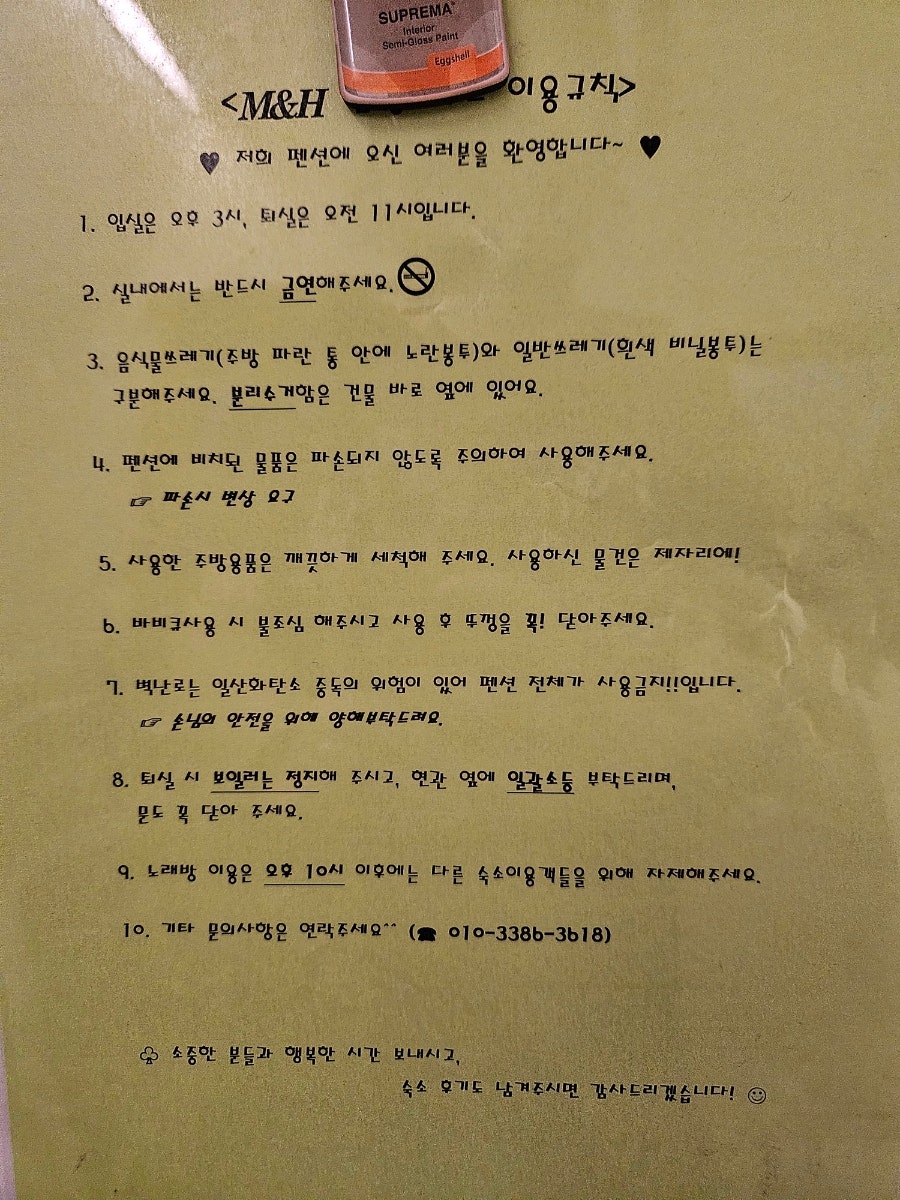 SUPREMA™
Interior
Semi-Gloss Paint
Eggshell
<M&H 이용규칙>
♥ 저희 펜션에 오신 여러분을 환영합니다~ ♥
1. 입실은 오후 3시, 퇴실은 오전 11시입니다.
2. 실내에서는 반드시 금연해주세요.
3. 음식물쓰레기(주방 파란 통 안에 노란봉투)와 일반쓰레기(흰색 비닐봉투)는
구분해주세요. 분리수거함은 건물 바로 옆에 있어요.
4. 펜션에 비치된 물품은 파손되지 않도록 주의하여 사용해주세요.
☞ 파손시 변상 요구
5. 사용한 주방용품은 깨끗하게 세척해 주세요. 사용하신 물건은 제자리에!
6. 바비큐사용 시 불조심 해주시고 사용 후 뚜껑을 꼭! 닫아주세요.
7. 벽난로는 일산화탄소 중독의 위험이 있어 펜션 전체가 사용금지!!입니다.
☞ 손님의 안전을 위해 양해부탁드려요.
8. 퇴실 시 보일러는 정지해 주시고, 현관 옆에 일괄소등 부탁드리며,
문도 꼭 닫아 주세요.
9. 노래방 이용은 오후 10시 이후에는 다른 숙소이용객들을 위해 자제해주세요.
10. 기타 문의사항은 연락주세요^^ (☎ 010-3386-3618)
♧ 소중한 분들과 행복한 시간 보내시고,
숙소 후기도 남겨주시면 감사드리겠습니다! ☺